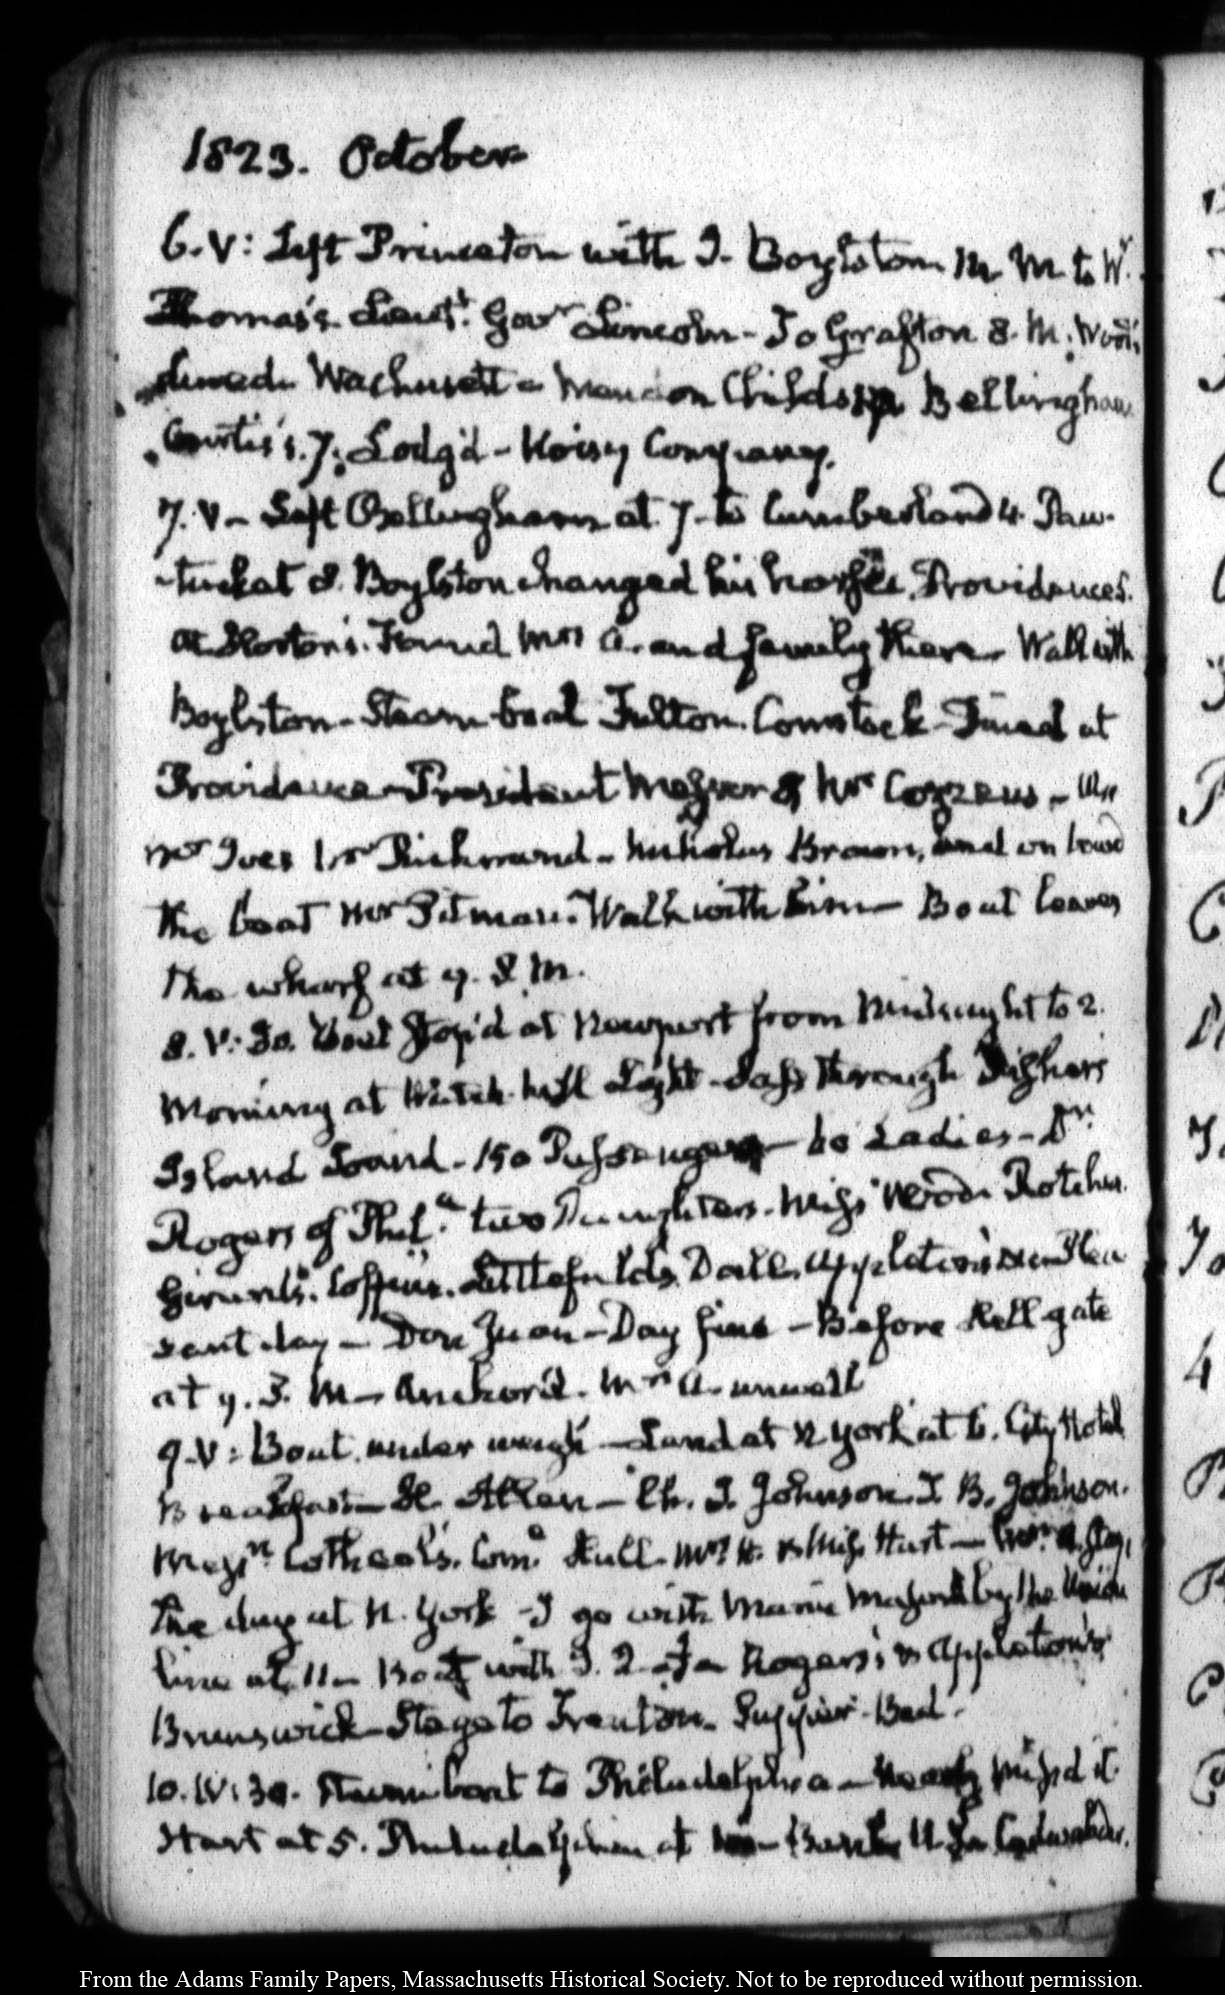 1823. October
6. V: Left Princeton with J. Boylston to Wr
Thomas's. Lieutt. Govr Lincoln - To Grafton 8. M. Wood's
dined. Wachusett - Mendon Childs's Bellingham
Curtis's. 7. Lodg'd - Noisy Company.
7. V - Left Bellingham at 7 - to Cumberland 4. Paw-
-tucket 8. Boylston changed his horses. Providence
at Horton's. Found Mrs A. and family there. Walk with
Boylston - Steam-boat Fulton. Comstock - Dined at
Providence - President Messer & Mr Cozzens -
Mr Ives Mr Richmond - Nicholas Brown, and on board
the boat Mr Pitman. Walk with him - Boat leaves
the wharf at
8. V: 30. Boat Stop'd at Newport from Midnight to 2.
Morning at Watch-hill Light - Pass through Fishers
Island Sound - 150 Passengers - 60 Ladies - Dr.
Rogers of Phila. two Daughters. Miss Rotches.
Coffin. Littlefields. Dall. Appleton's Plea
sant day - Don Juan - Day fine - Before Hell gate
at 9. Anchor'd. Mrs A. unwell
9. V: Boat under weigh - Land at N York at 6. City Hotel
Breakfast - Allen - Ch. J. Johnson. J. B. Johnson.
Com. Hull. Mrs H. & Miss Hart -
the day at N. York - I go with by the Union
line at 11 - Boat with Rogers's & Appleton's
Brunswick - Stage to Trenton. Supper - Bed.
10. IV: 30. Steam boat to Philadelphia - nearly miss'd it.
Start at 5. Philadelphia at Cadwalader.
From the Adams Family Papers, Massachusetts Historical Society. Not to be reproduced without permission.